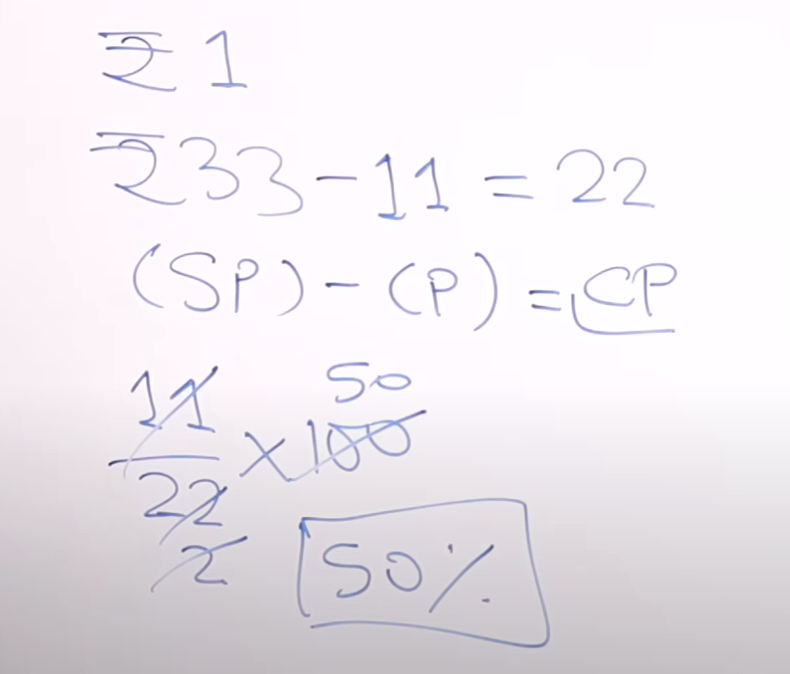 ₹ 1
₹33 - 11 = 22
(SP) - (P) = CP
50
11/22 × 100
2
50%